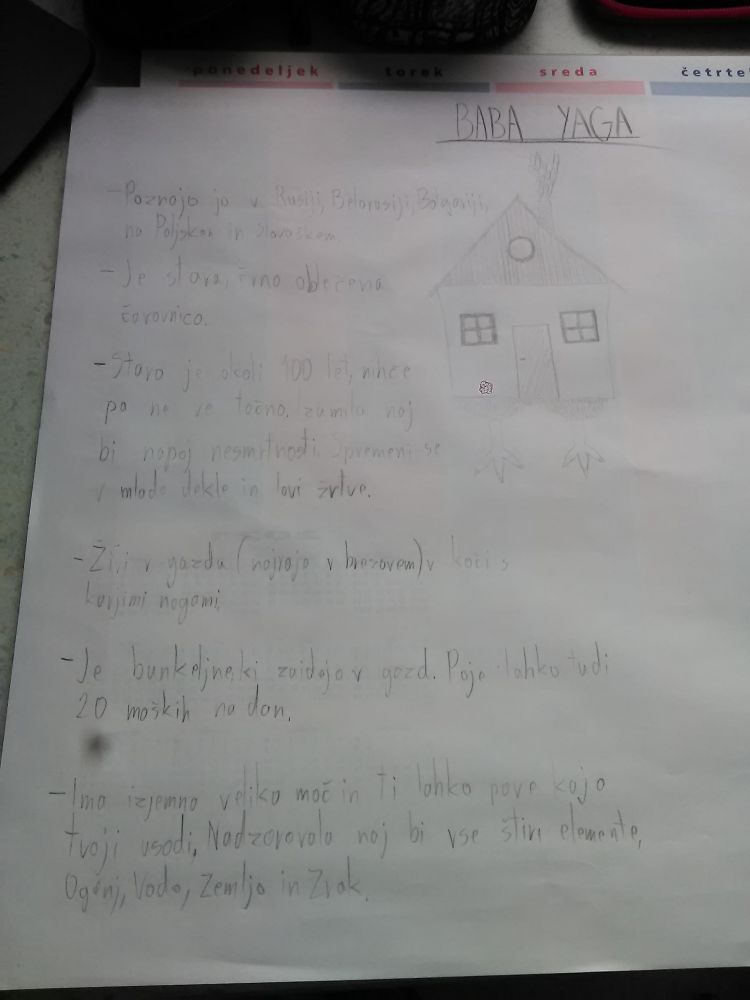 ponedeljek torek sreda četrte
BABA YAGA
-Poznajo jo v Rusiji, Belorusiji, Bolgariji,
na Poljskem in Slovaškem.
-Je stara, črno oblečena
čarovnica.
-Stara je okoli 100 let, nihče
pa ne ve točno. imela naj
bi napoj nesmrtnosti. Spremeni se
v mlado dekle in lovi žrtve.
-Živi v gozdu (najrajo v brezovem) v koči s
kurjimi nogami.
-Je ki zaidejo v gozd. Poje lahko tudi
20 moških na dan.
-Ima izjemno veliko moč in ti lahko pove kaj o
tvoji usodi. Nadzorovala naj bi vse štiri elemente,
Ogenj, Voda, Zemlja in Zrak.